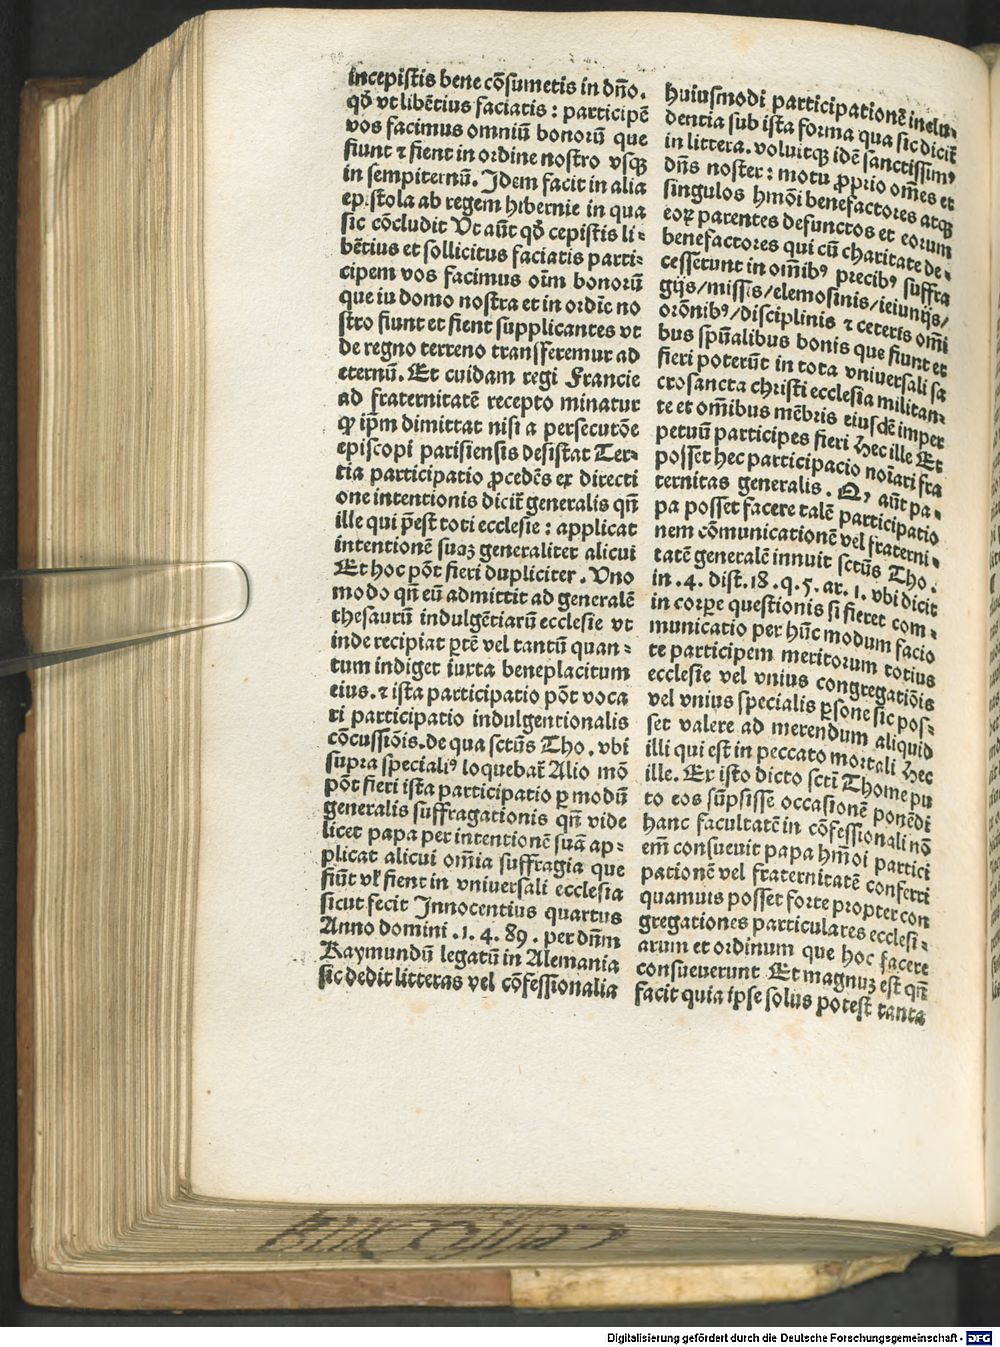 incepistis bene cõsumetis in dño.
qđ vt libẽtius faciatis : participẽ
vos facimus omniũ bonorũ que
fiunt ⁊ fient in ordine nostro vsqꝫ
in sempiternũ. Idem facit in alia
epistola ab regem hibernie in qua
sic cõcludit Vt aũt qđ cepistis li⸗
bẽtius et sollicitus faciatis parti⸗
cipem vos facimus oĩm bonorũ
que iu domo nostra et in ordĩe no
stro fiunt et fient supplicantes vt
de regno terreno transferemur ad
eternũ. Et cuidam regi Francie
ad fraternitatẽ recepto minatur
ꝙ ip̃m dimittat nisi a persecutõe
episcopi parisiensis desistat Ter⸗
tia participatio ꝓcedẽs ex directi
one intentionis dicit᷑ generalis qñ
ille qui p̃est toti ecclesie : applicat
intentionẽ suaꝫ generaliter alicui
Et hoc põt fieri dupliciter. Vno
modo qñ eũ admittit ad generalẽ
thesaurũ indulgẽtiarũ ecclesie vt
inde recipiat ꝑtẽ vel tantũ quan⸗
tum indiget iuxta beneplacitum
eius. ⁊ ista participatio põt voca
ri participatio indulgentionalis
cõcussiõis. de qua sctũs Tho. vbi
supra speciali⁹ loquebat᷑ Alio mõ
põt fieri ista participatio ꝑ modũ
generalis suffragationis qñ vide
licet papa per intentionẽ suã ap⸗
plicat alicui om̃ia suffragia que
fiũt vl᷑ fient in vniuersali ecclesia
sicut fecit Innocentius quartus
Anno domini .1.4.89. per dñm
Raymundũ legatũ in Alemania
sic dedit litteras vel cõfessionalia
huiusmodi participationẽ inclu⸗
dentia sub ista forma qua sic dicit᷑
in littera. voluitqꝫ idẽ sanctissim⁹
dñs noster : motu ꝓprio om̃es et
singulos hmõi benefactores atqꝫ
eoꝝ parentes defunctos et eorum
benefactores qui cũ charitate de⸗
cesserunt in om̃ib⁹ precib⁹ suffra
gijs/missis/elemosinis/ieiunijs/
orõnib⁹/disciplinis ⁊ ceteris om̃i
bus spũalibus bonis que fiunt et
fieri poterũt in tota vniuersali sa
crosancta christi ecclesia militan⸗
te et om̃ibus mẽbris eiusdẽ imper
petuũ participes fieri Hec ille Et
posset hec participacio noĩari fra
ternitas generalis. Q, aũt pa⸗
pa posset facere talẽ participatio
nem cõmunicationẽ vel fraterni⸗
tatẽ generalẽ innuit sctũs Tho.
in .4. dist.18.q.5.ar.1. vbi dicit
in corꝑe questionis si fieret com⸗
municatio per hũc modum facio
te participem meritorum totius
ecclesie vel vnius congregatiõis
vel vnius specialis ꝑsone sic pos⸗
set valere ad merendum aliquid
illi qui est in peccato mortali Hec
ille. Ex isto dicto sctĩ Thome pu
to eos sũpsisse occasionẽ ponẽdi
hanc facultatẽ in cõfessionali nõ
em̃ consueuit papa hm̃oi partici
pationẽ vel fraternitatẽ conferri
quamuis posset forte propter con
gregationes particulares ecclesi⸗
arum et ordinum que hoc facere
consueuerunt Et magnuꝫ est qñ
facit quia ipse solus potest tanta
Digitalisierung gefördert durch die Deutsche Forschungsgemeinschaft - DFG